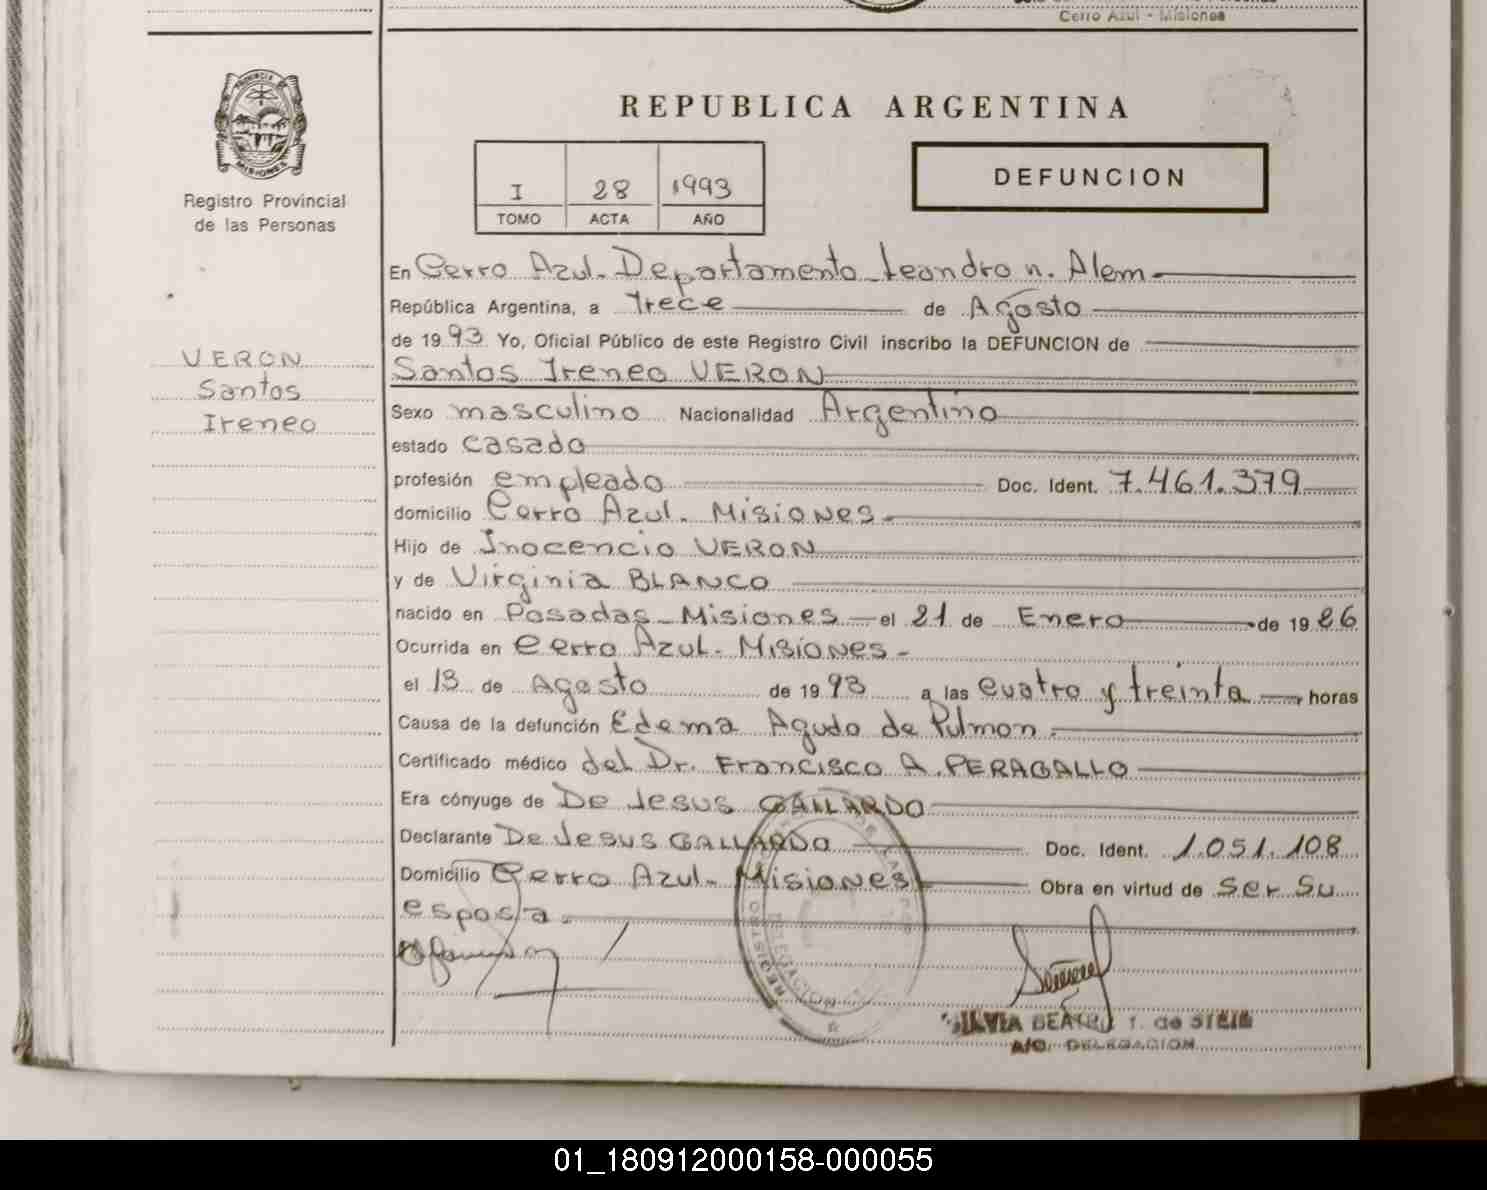 Cerro Azul - Misiones
PROVINCIA DE
MISIONES
Registro Provincial
de las Personas
REPUBLICA ARGENTINA
I 28 1993
TOMO ACTA AÑO
DEFUNCION
En Cerro Azul. Departamento Leandro n. Alem
República Argentina, a trece de Agosto
de 1993 Yo, Oficial Público de este Registro Civil inscribo la DEFUNCION de
VERON
Santos
Ireneo
Santos Ireneo VERON
Sexo masculino Nacionalidad Argentino
estado casado
profesión empleado Doc. Ident. 7.461.379
domicilio Cerro Azul. Misiones
Hijo de Inocencio VERON
y de Virginia BLANCO
nacido en Posadas - Misiones el 21 de Enero de 19
Ocurrida en Cerro Azul. Misiones -
el 13 de Agosto de 1993 a las cuatro y treinta horas
Causa de la defunción Edema Agudo de Pulmon.
Certificado médico del Dr. Francisco A. PERAGALLO
Era cónyuge de De Jesus GALLARDO
Declarante De Jesus GALLARDO Doc. Ident. 1.051.108
Domicilio Cerro Azul - Misiones Obra en virtud de ser su
esposa
REGISTRO
DELEGACION
SILVIA BEATRIZ T. de
A/C. DELEGACION
01_180912000158-000055